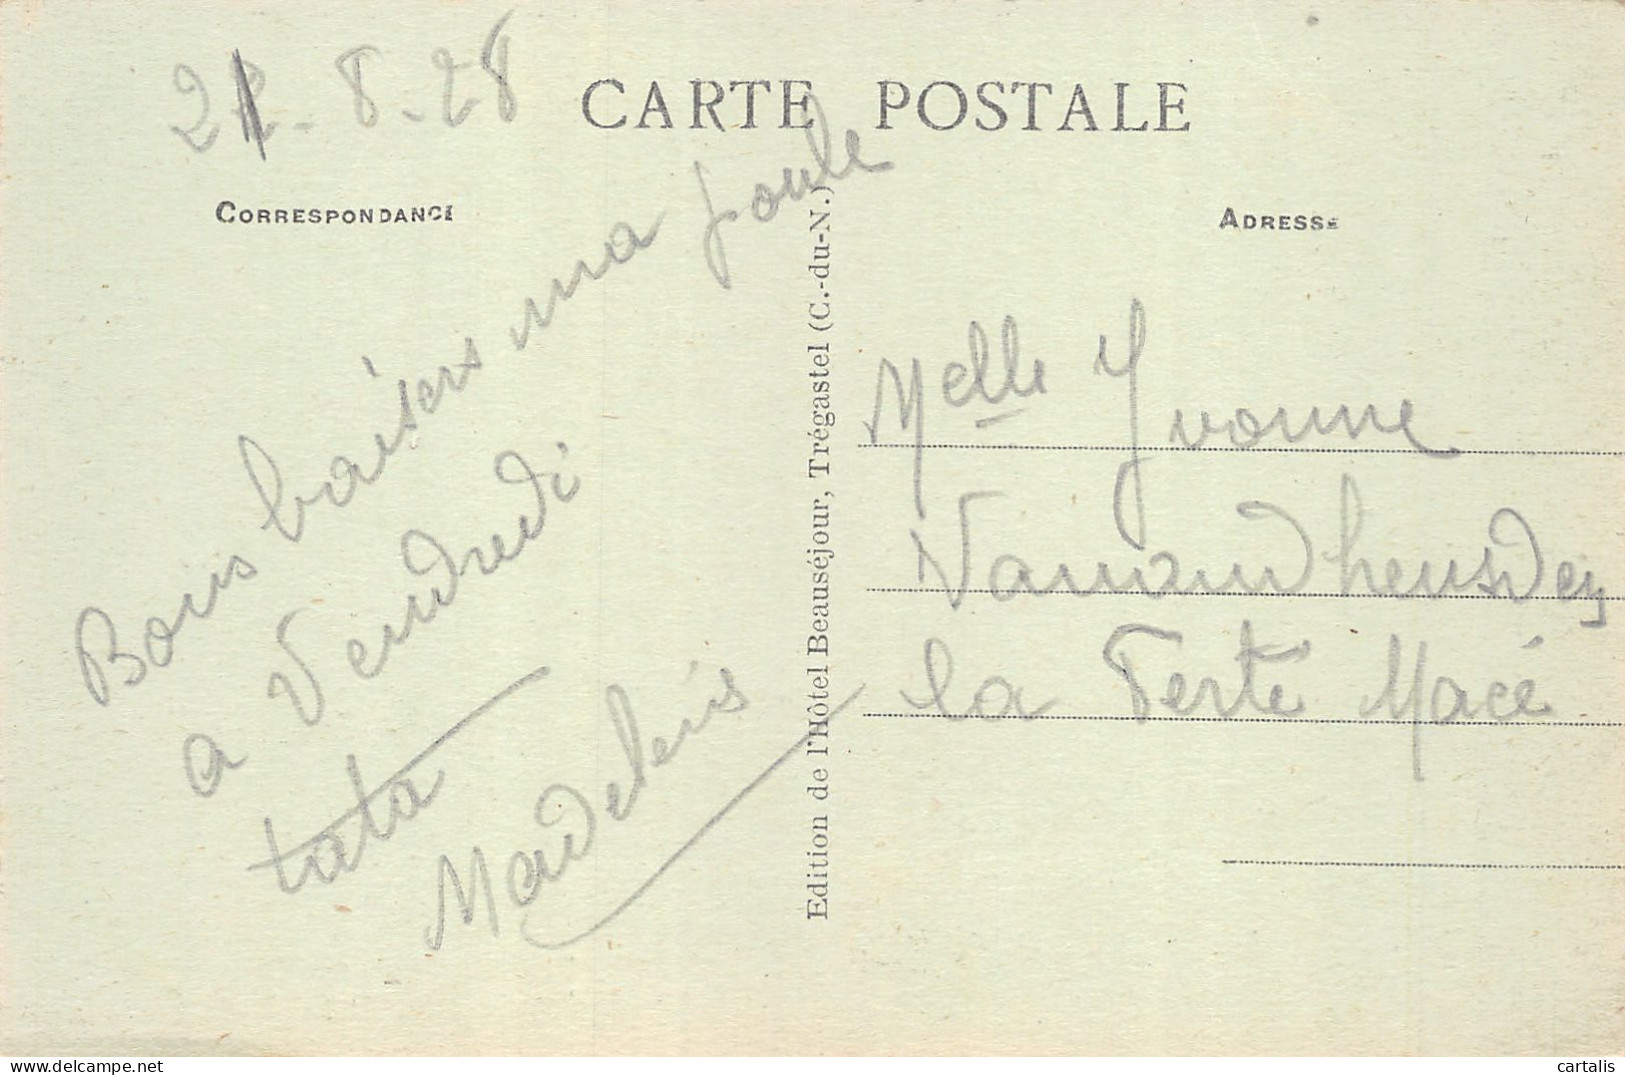 21-8-28
CARTE POSTALE
CORRESPONDANCE
ADRESSE
Bons baisers ma poule
a Vendredi
tata
Edition de l'Hôtel Beauséjour, Trégastel (C.-du-N.)
Melle Yvonne
la Ferte Macé
cartalis